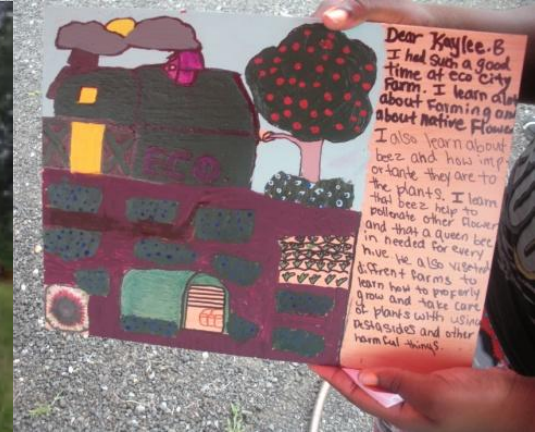 ECO
Dear Kaylee.B
I had such a good
time at eco City
Farm. I learn alot
about Farming and
about Native Flower
I also learn about
beez and how imp
ortante they are to
the plants. I learn
that beez help to
pollenate other flower
and that a queen bee
in needed for every
hive. We also visited
diffrent farms to
learn how to properly
grow and take care
of plants with using
pestasides and other
harmful things.